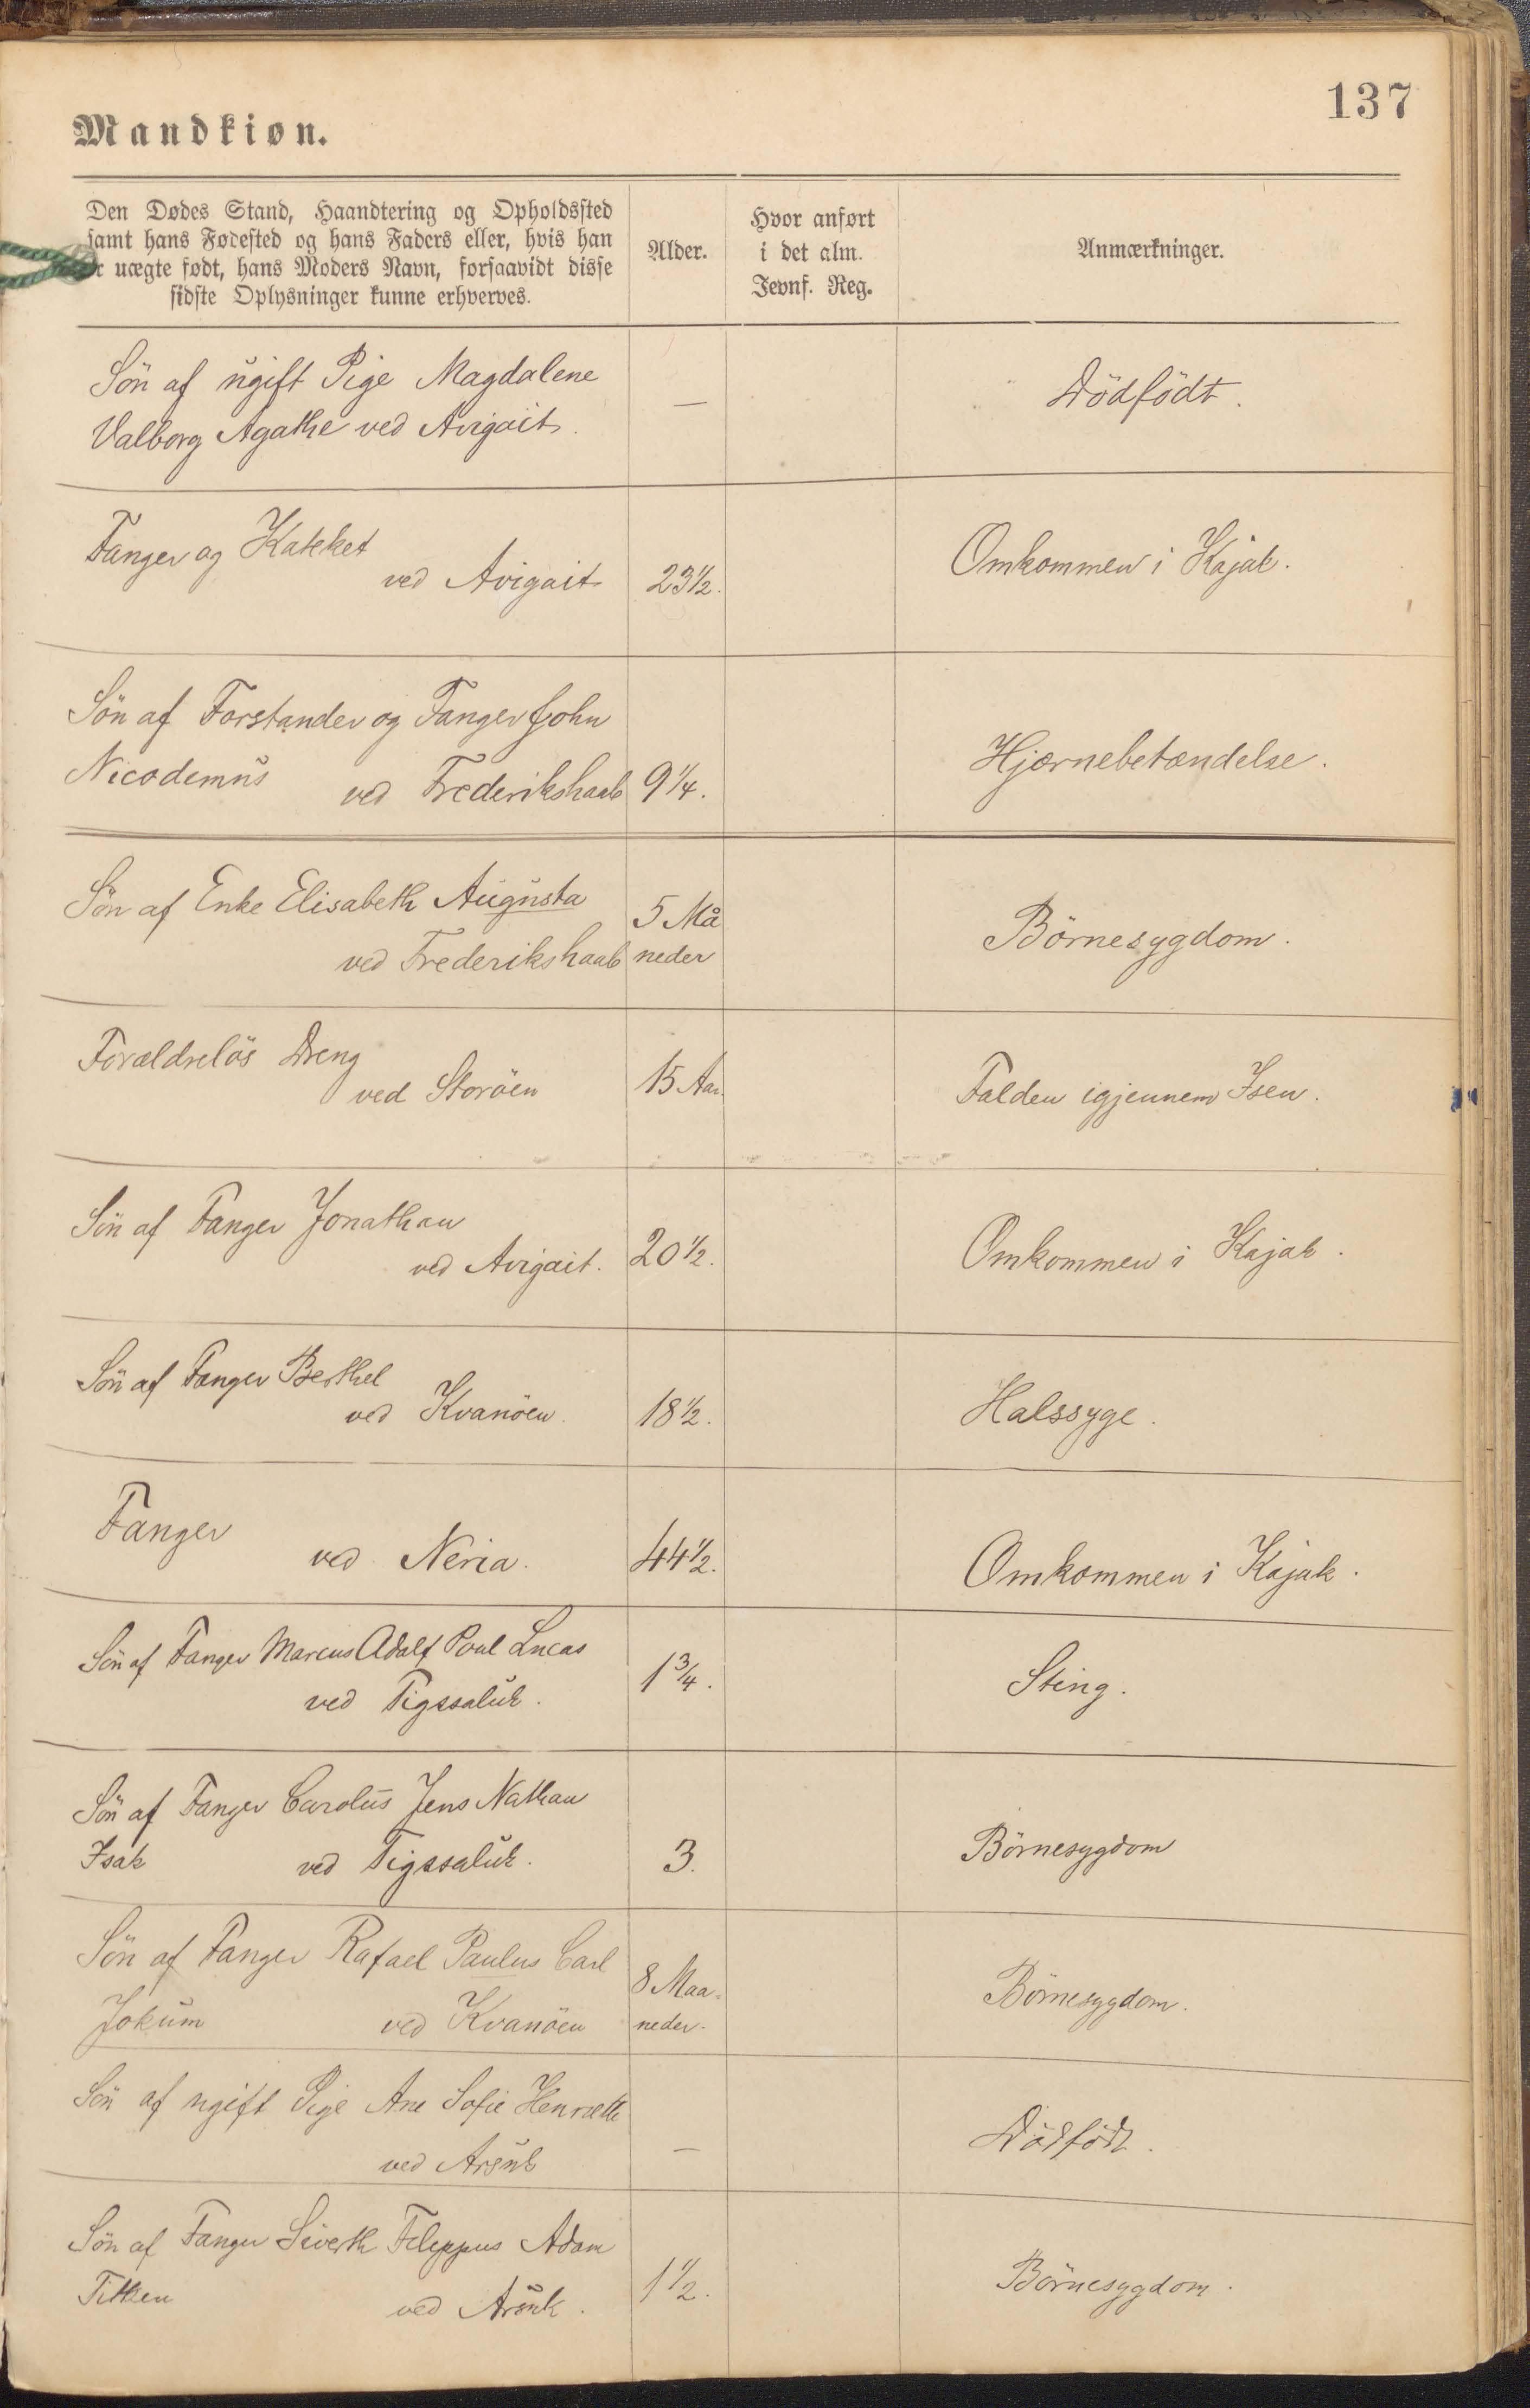 137
Mandkiøn.
Den Dødes Stand, Haandtering og Opholdssted
samt hans Fødested og hans Faders eller, hvis han
er uægte født, hans Moders Navn, forsaavidt disse
sidste Oplysninger kunne erhverves.
Alder.
Hvor anført
i det alm.
Jevnf. Reg.
Anmærkninger.
Sön af ugift Pige Magdalene
Valborg Agathe ved Avigait.
—
Dödfödt.
Fanger og Kateket
ved Avigait
23 1/2.
Omkommen i Kajak.
Sön af Forstander og Fanger John
Nicodemus ved Frederikshaab
9 1/4.
Hjærnebetændelse.
Sön af Enke Elisabeth Augusta
ved Frederikshaab
5 Må
neder
Börnesygdom.
Forældrelös Dreng
ved Storöen
15 Aar.
Falden igjennem Isen.
Sön af Fanger Jonathan
ved Avigait.
20 1/2.
Omkommen i Kajak.
Sön af Fanger Berthel
ved Kvanöen.
18 1/2.
Halssyge.
Fanger
ved Neria.
44 1/2.
Omkommen i Kajak.
Sön af Fanger Marcus Adolf Poul Lucas
ved Tigssaluk.
1 3/4.
Sting.
Sön af Fanger Carolus Jens Nathan
Isak ved Tigssaluk.
3.
Börnesygdom
Sön af Fanger Rafael Paulus Carl
Jokum ved Kvanöen
8 Maa-
neder.
Börnesygdom.
Sön af ugift Pige Ane Sofie Henriette
ved Arsuk
—
Dödfödt.
Sön af Fanger Siverth Filippus Adam
Titken ved Arsuk.
1 1/2.
Börnesygdom.